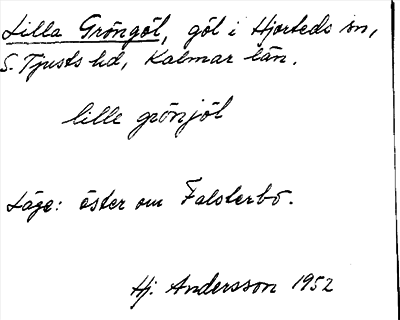 Lilla Gröngöl, göl i Hjorteds sn,
S. Tjusts hd, Kalmar län.
lille grönjöl
Läge: öster om Falsterbo.
Hj. Andersson 1952